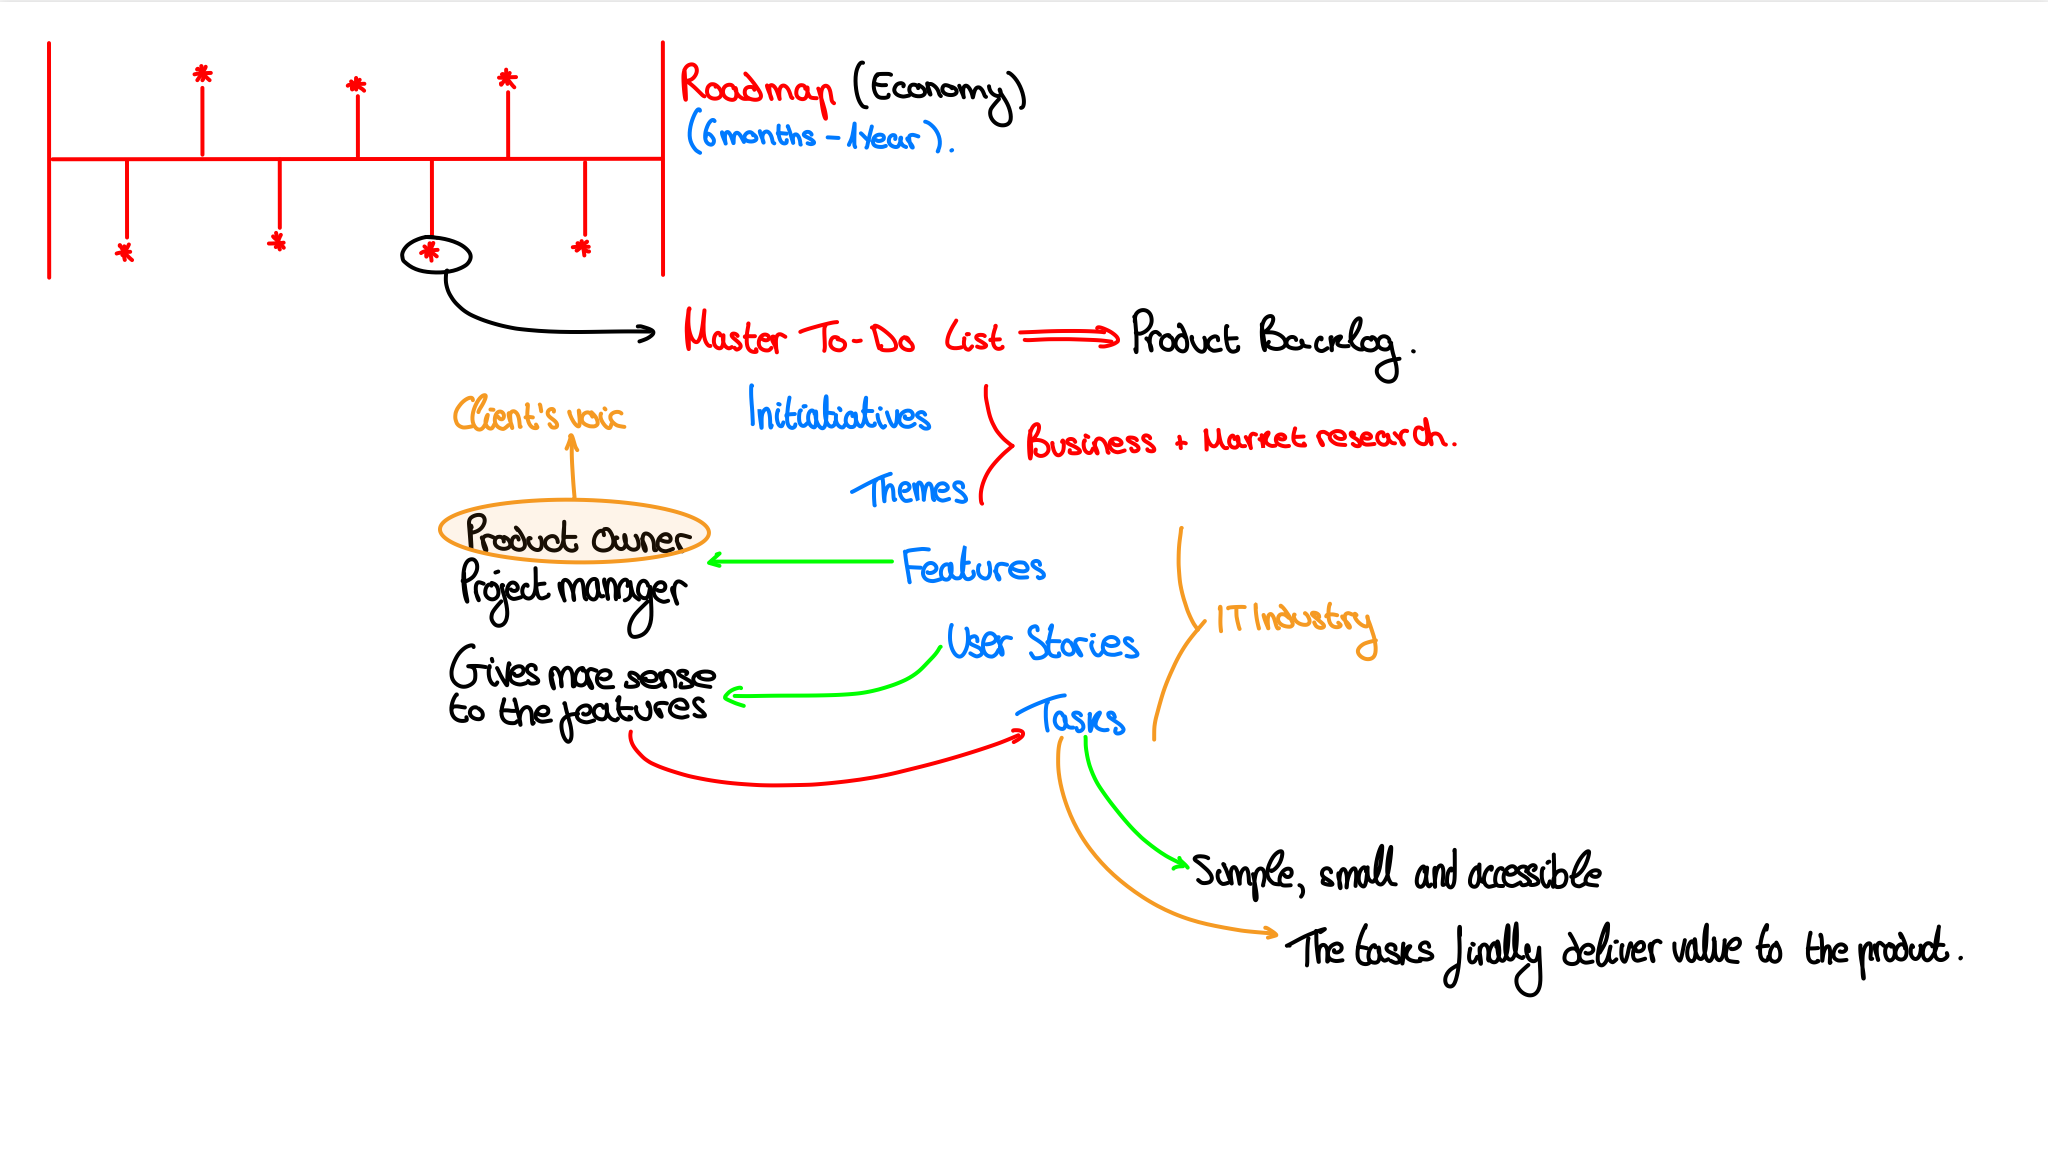 Roadmap (Economy)
(6 months - 1 Year).
Master To-Do List ⇒ Product Backlog.
Client's voic
Initiabiatives
Business + Market research.
Themes
Product Owner
Features
Project manager
IT Industry
User Stories
Gives more sense
to the features
Tasks
Simple, small and accessible
The tasks finally deliver value to the product.